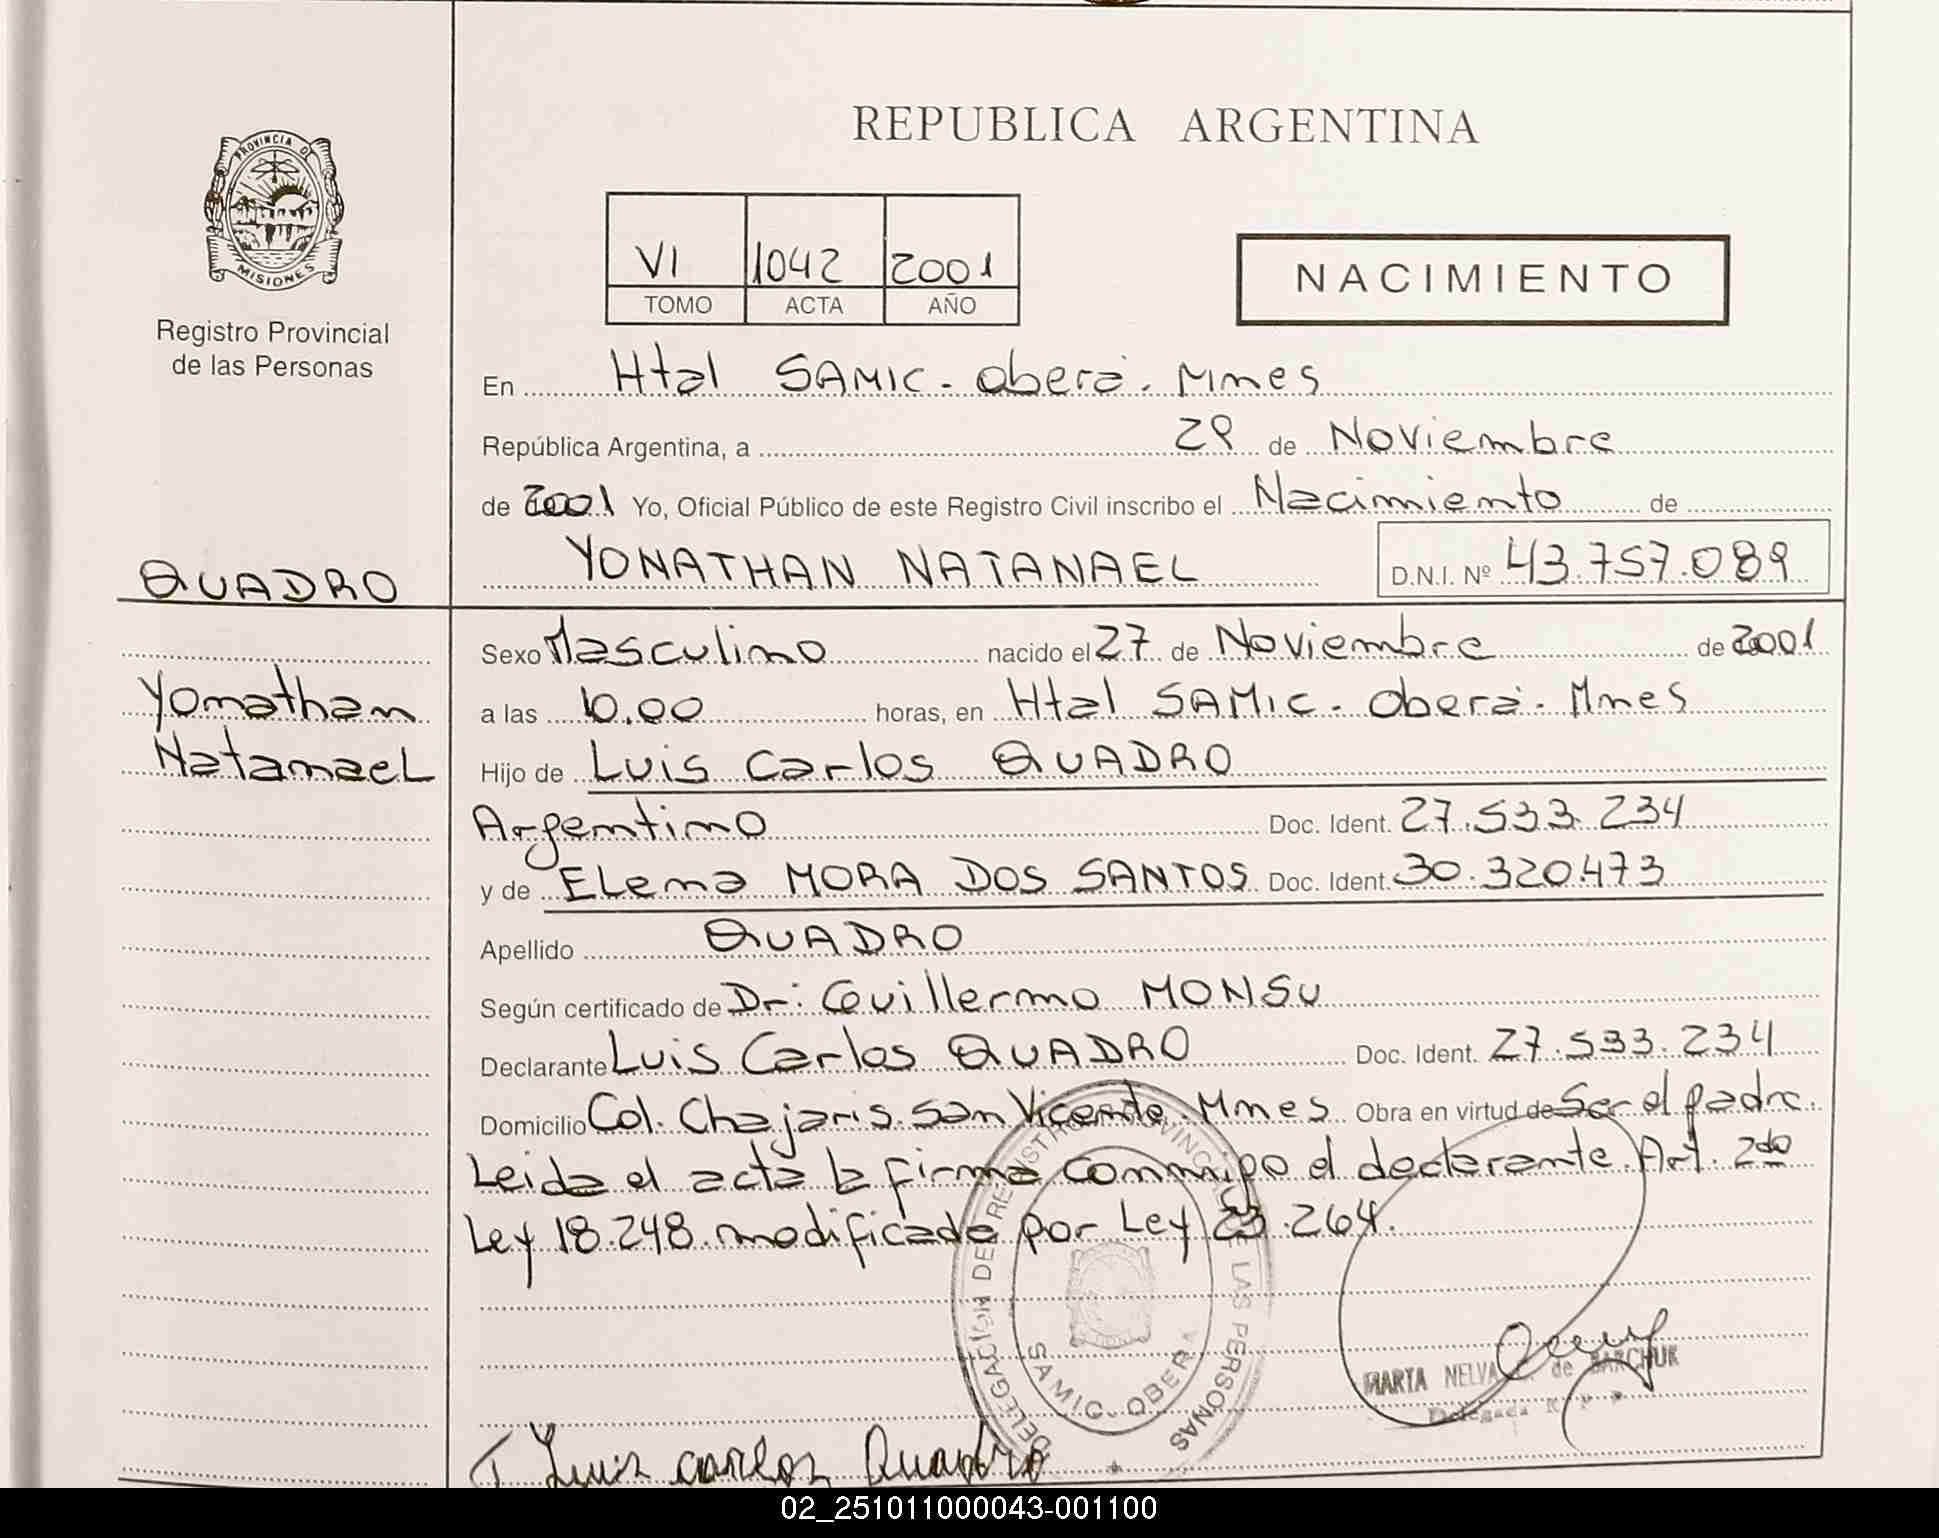 REPUBLICA ARGENTINA
PROVINCIA DE
MISIONES
Registro Provincial
de las Personas
VI 1042 2001
TOMO ACTA AÑO
NACIMIENTO
En Htal SAMIC - Oberá - Mnes
República Argentina, a 29 de Noviembre
de 2001 Yo, Oficial Público de este Registro Civil inscribo el Nacimiento de
YONATHAN NATANAEL D.N.I. Nº 43.757.089
QUADRO
Yonathan
Natanael
Sexo Masculino nacido el 27 de Noviembre de 2001
a las 10.00 horas, en Htal SAMIC - Oberá - Mnes
Hijo de Luis Carlos QUADRO
Argentino Doc. Ident. 27.533.234
y de Elena MORA DOS SANTOS Doc. Ident. 30.320.473
Apellido QUADRO
Según certificado de Dr: Guillermo MONSU
Declarante Luis Carlos QUADRO Doc. Ident. 27.533.234
Domicilio Col. Chajaris. San Vicente. Mnes Obra en virtud de Ser el padre.
Leida el acta la firma conmigo el declarante. Art. 2do
Ley 18.248. modificada por Ley 23.264.
DELEGACION DEL REGISTRO PROVINCIAL DE LAS PERSONAS
SAMIC - OBERA
MARTA NELVA de BARCHUK
Delegada R. P. P.
Luis carlos Quadro
02_251011000043-001100